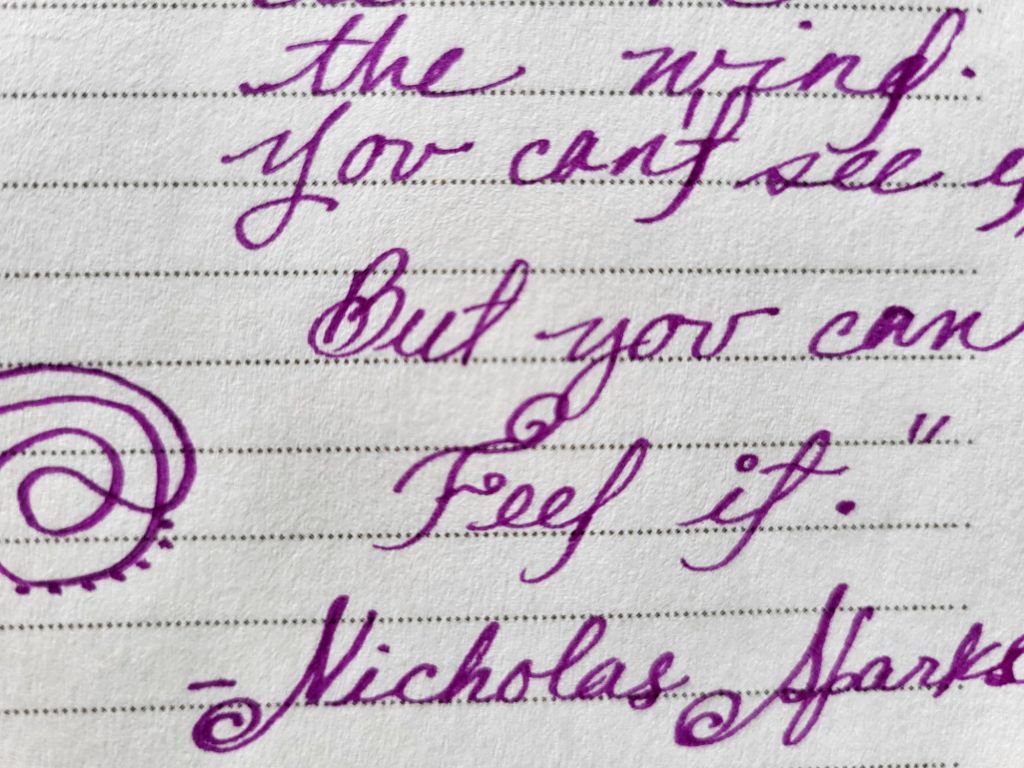 the wind.
You can't see
But you can
Feel it."
- Nicholas Sparks